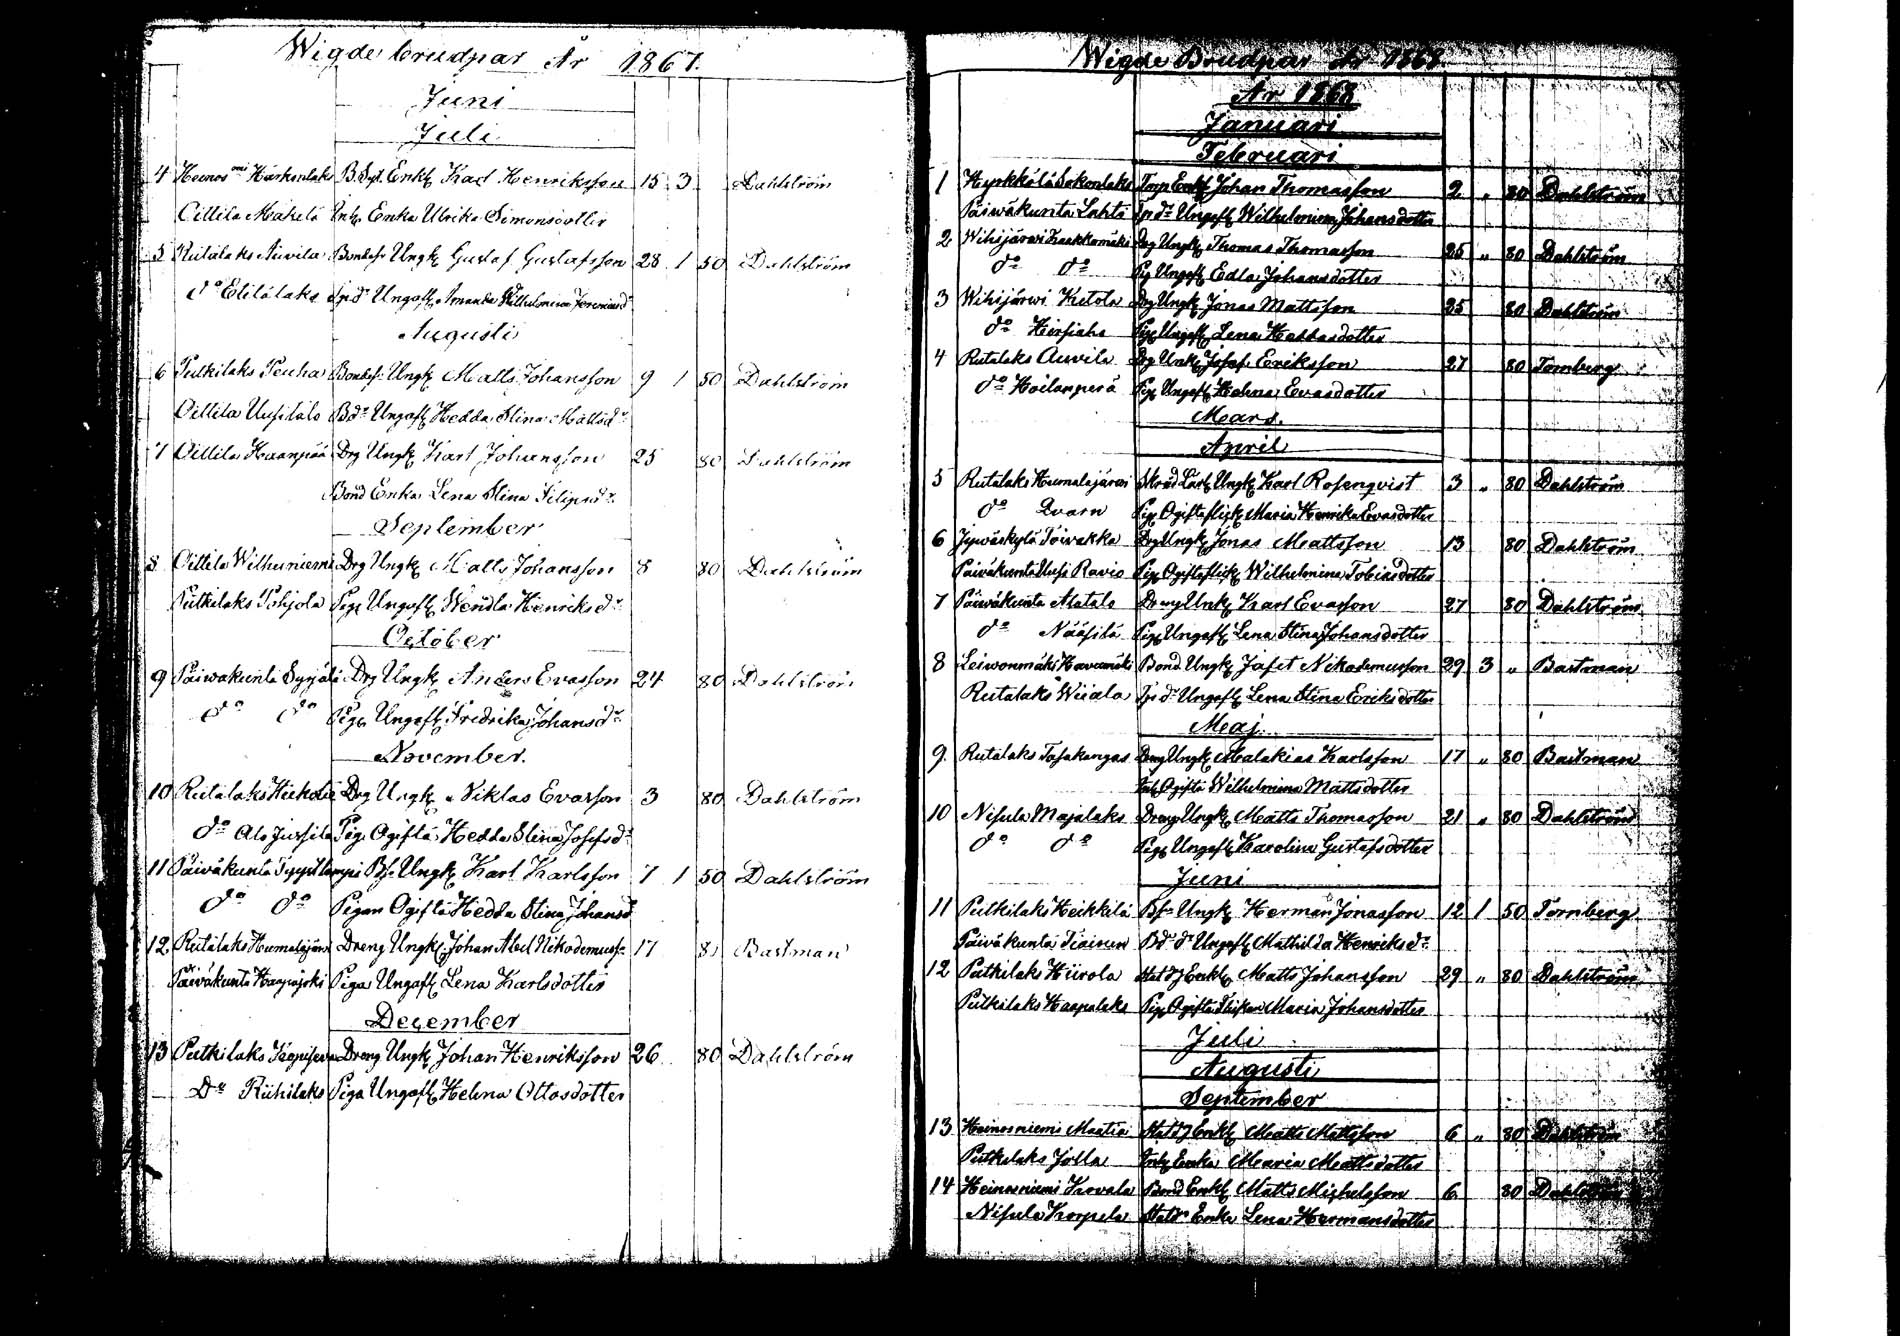 Wigde brudpar År 1867.
Juni
Juli
4 Heinos mi Härkönlaks B.Spt. Enkl Karl Henriksson 15 3 Dahlström
Oittila Mäkelä Inh. Enka Ulrika Simonsdotter
5 Rutalaks Auvila Bondes. Ungk Gustaf Gustafsson 28 1 50 Dahlström
do Etilälaks Sp.dr Ungqfl Amanda Wilhelmina Jeremiasd
Augusti
6 Putkilaks Peuha Bondes. Ungk Matts Johansson 9 1 50 Dahlström
Oittila Uusitalo Bdr Ungqfl Hedda Stina Mattsdr
7 Oittila Haanpää Drg Ungk Karl Johansson 25 80 Dahlström
Bond Enka Lena Stina Filipsdr
September
8 Oittila Wilhuniemi Drg Ungk Matts Johansson 8 80 Dahlström
Putkilaks Pohjola Pig Ungqfl Wendla Henriksdr
October
9 Päiwäkunta Syrjälä Drg Ungk Anders Evasson 24 80 Dahlström
do do Pig Ungqfl Fredrika Johansdr
November.
10 Rutalaks Hiekola Drg Ungk Niklas Evasson 3 80 Dahlström
do Ala Jussila Pig Ogifta Hedda Stina Josefsdr
11 Päiväkunta Tyystlampi Bs. Ungk Karl Karlsson 7 1 50 Dahlström
do do Pigan Ogifta Hedda Stina Johansd
12 Rutalaks Humalajärvi Dreng Ungk Johan Abel Nikodemuss. 17 80 Bastman
Päiväkunta Haapajoki Piga Ungqfl Lena Karlsdotter
December
13 Putkilaks Dreng Ungk Johan Henriksson 26 80 Dahlström
Do Riihilaks Piga Ungqfl Helena Ottosdotter
Wigde Brudpar År 1868.
År 1868
Januari
Februari
1 Hyrkkälä Sakonlaks Torp Enkl Johan Thomasson 2 " 80 Dahlström
Päiwäkunta Lahti Sp dr Ungqfl Wilhelmina Johansdotter
2 Wihijärwi Haukkamäki Drg Ungk Thomas Thomasson 25 " 80 Dahlström
do do Pig Ungqfl Edla Johansdotter
3 Wihijärwi Ketola Drg Ungk Jonas Mattsson 25 80 Dahlström
do Hirsiaho Pig Ungqfl Lena Heddasdotter
4 Rutalaks Auvila Drg Unk Josef Eriksson 27 80 Tornberg
do Hoilanperä Pig Ungqfl Helena Evasdotter
Mars.
April
5 Rutalaks Humalajärvi Skräd Lärl Ungk Karl Rosenqvist 3 " 80 Dahlström
do Qvarn Pig Ogifta flick Maria Henrika Evasdotter
6 Jyväskylä Toivakka Drg Ungk Jonas Mattsson 13 80 Dahlström
Päiväkunta Uusi Ravio Pig Ogifta flick Wilhelmina Tobiasdotter
7 Päiwäkunta Alatalo Dreng Unk Karl Evasson 27 80 Dahlström
do Nääsilä Pig Ungqfl Lena Stina Johansdotter
8 Leivonmäki Havumäki Bond Ungk Jafet Nikodemusson 29 3 " Bastman
Rutalaks Wiiala Sp dr Ungqfl Lena Stina Eriksdotter
Maj
9. Rutalaks Tasakangas Dreng Ungk Malakias Karlsson 17 " 80 Bastman
Inh Ogifta Wilhelmina Mattsdotter
10 Nisula Majalaks Dreng Ungk Matts Thomasson 21 " 80 Dahlström
do do Pig Ungqfl Karolina Gustafsdotter
Juni
11 Putkilaks Heikkilä Bs. Ungk Herman Jonasson 12 1 50 Tornberg
Päiväkunta Tiainen Bd. dr Ungqfl Mathilda Henriksdr
12 Putkilaks Hiirola Statdg Enkl Matts Johansson 29 " 80 Dahlström
Putkilaks Haapalaks Pig Ogifta flickan Maria Johansdotter
Juli
Augusti
September
13 Heinosniemi Maatia Statdg Enkl Matts Mattsson 6 " 80 Dahlström
Putkilaks Jolla Inh Enka Maria Mattsdotter
14 Heinosniemi Kovala Bond Enkl Matts Michelsson 6 80 Dahlström
Nisula Korpela Statdr Enka Lena Hermansdotter